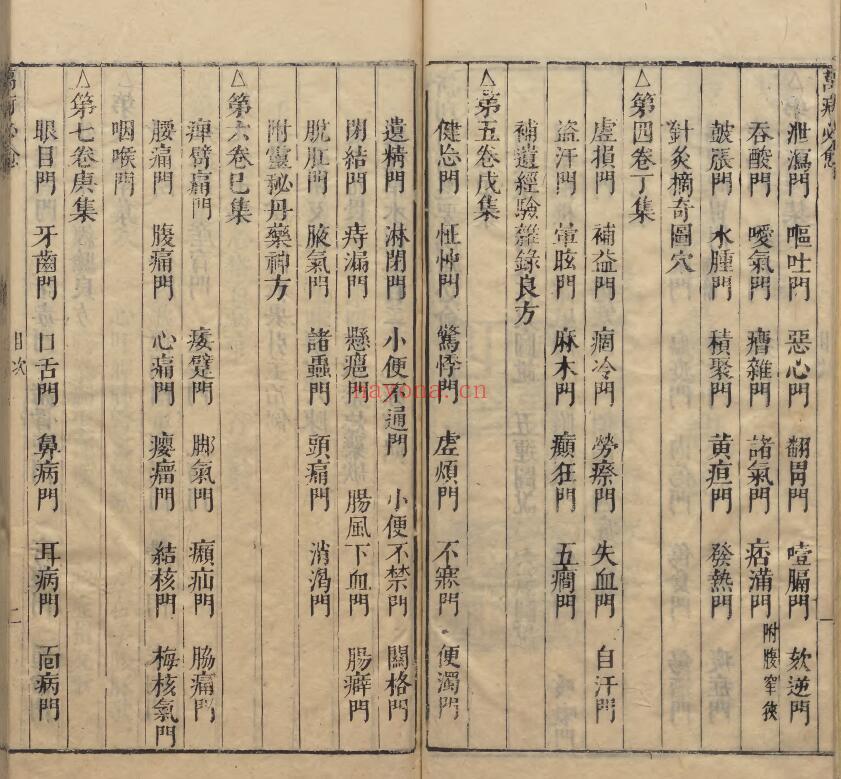 泄瀉門 嘔吐門 惡心門 翻胃門 噎膈門 欬逆門
吞酸門 噯氣門 嘈雜門 諸氣門 痞滿門 附腹窄狹
皷脹門 水腫門 積聚門 黃疸門 發熱門
針灸摘奇圖穴
△第四卷丁集
虛損門 補益門 痼冷門 勞瘵門 失血門 自汗門
盜汗門 暈眩門 麻木門 癲狂門 五癇門
補遺經驗雜錄良方
△第五卷戊集
健忘門 怔忡門 驚悸門 虛煩門 不寐門 便濁門
遺精門 淋閉門 小便不通門 小便不禁門 關格門
閉結門 痔漏門 懸癰門 腸風下血門 腸癖門
脫肛門 腋氣門 諸蟲門 頭痛門 消渴門
附靈秘丹藥神方
△第六卷巳集
痺臂痛門 痿躄門 脚氣門 㿗疝門 脇痛門
腰痛門 腹痛門 心痛門 癭瘤門 結核門 梅核氣門
咽喉門
△第七卷庚集
眼目門 牙齒門 口舌門 鼻病門 耳病門 面病門
目次
二
nayona.cn